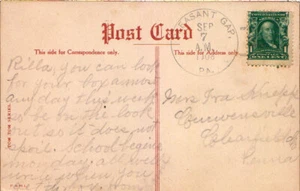 Post Card
This side for Correspondence only.
This side is for the Address only.
PLEASANT GAP,
SEP
7
A.M.
PA.
Rilla, you can look
for your box almost
any day this week
so be on the look
out so it does not
spoil. School begins
Monday a week
write when you
Mrs Ira
Curwensville
Clearfield
Penna